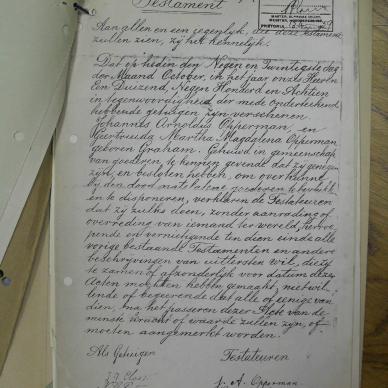 Testament
MASTER, SUPREME COURT
PRETORIA
Aan allen en een iegenlyk, die deze testament
zullen zien, zy het kennelyk.
Dat op heden den Negen en Twintigste dag
der Maand October, in het jaar onzes Heeren
Een Duizend, Negen Honderd en Achtien
in tegenwoordigheid der mede ondertekend
hebbende getuigen zyn verschenen
Johannes Arnoldus Opperman, en
Geertruida Martha Magdalena Opperman
geboren Graham. Gehuwd in gemeenschap
van goederen, te kennen gevende dat zy genegen
zyn, en besloten hebben, om over hunne
by den dood natelaten goederen te beschikken
en te disponeren, verklaren de Testateuren
dat zy zulks doen, zonder aanrading of
overreding van iemand ter wereld, herroe-
pende en vernietigende ten dien einde alle
vorige bestaande Testamenten en andere
beschryvingen van uitersten wil, die zy
te zamen of afzonderlyk voor datum dezer
Acten mochten hebben gemaakt, niet wil-
lende of begeerende dat alle of eenige van
dien, na het passeren dezer Acte van de
minste kracht of waarde zullen zyn, of
moeten aangemerkt worden.
Als Getuigen
Testateuren
J. A. Opperman